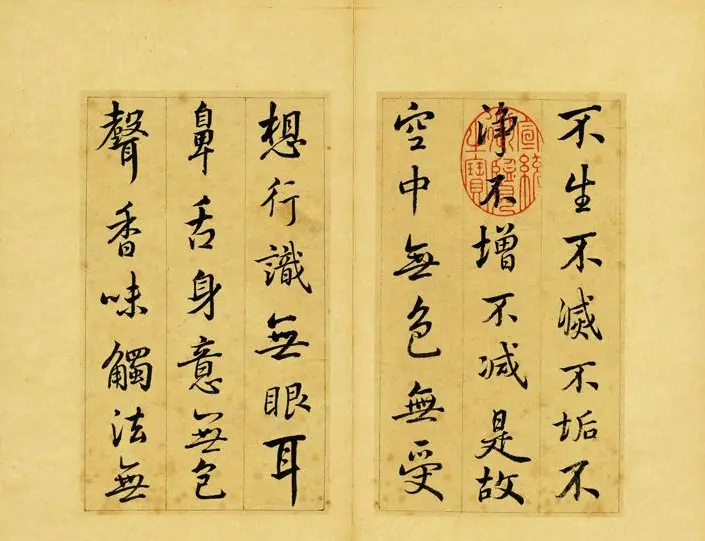 不生不滅不垢不
淨不增不減是故
空中無色無受
想行識無眼耳
鼻舌身意無色
聲香味觸法無
宣統御覽之寶